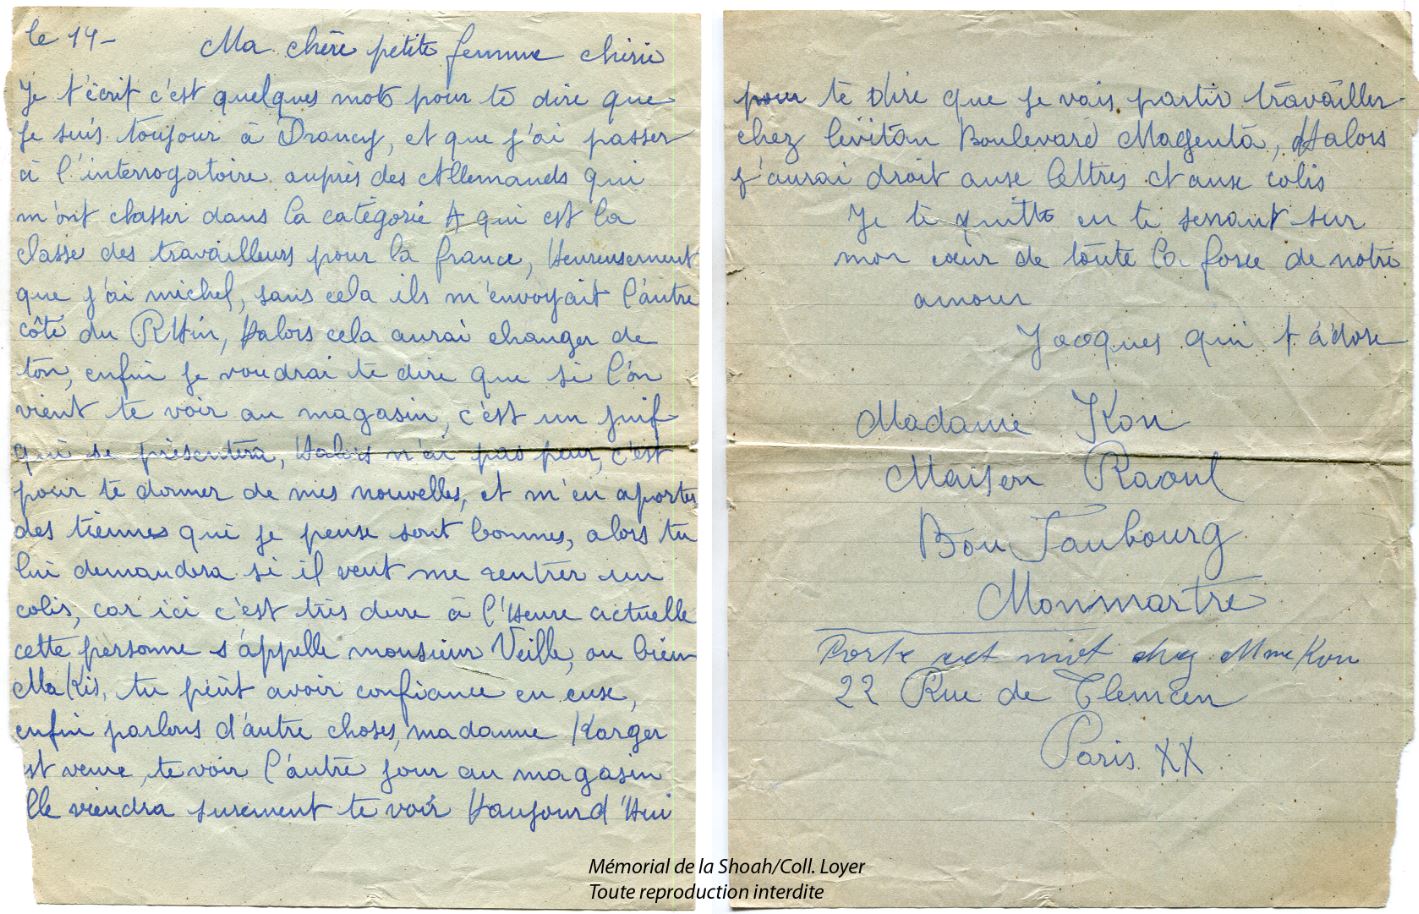 le 14-
Ma chère petite femme chérie
Je t'écrit c'est quelques mots pour te dire que
je suis toujour à Drancy, et que j'ai passer
à l'interrogatoire auprès des Allemands qui
m'ont classer dans la catégorie A qui est la
classe des travailleurs pour la france, Heureusement
que j'ai michel, sans cela ils m'envoyait l'autre
côté du RHin, Halors cela aurai changer de
ton, enfin je voudrai te dire que si l'on
vient te voir au magasin, c'est un juif
qui se présentera, Halors n'ai pas peur, c'est
pour te donner de mes nouvelles, et m'en aporter
des tiennes qui je pense sont bonnes, alors tu
lui demandera si il veut me rentrer un
colis, car ici c'est très dure à l'Heure actuelle
cette personne s'appelle monsieur Veille, ou bien
MaKis, tu peut avoir confiance en euse,
enfin parlons d'autre choses, madame Karger
est venue te voir l'autre jour au magasin
lle viendra surement te voir Haujourd'Hui
pour te dire que je vais partir travailler
chez lévitan Boulevard Magenta, Halors
j'aurai droit ause lettres et ause colis
Je te quitte en te serrant sur
mon cœur de toute la force de notre
amour
Jacques qui t'adore
Madame Kon
Maison Raoul
Bou Faubourg
Monmartre
Porte cet mot chez Mme Kon
22 Rue de Tlemcen
Paris XX
Mémorial de la Shoah/Coll. Loyer
Toute reproduction interdite